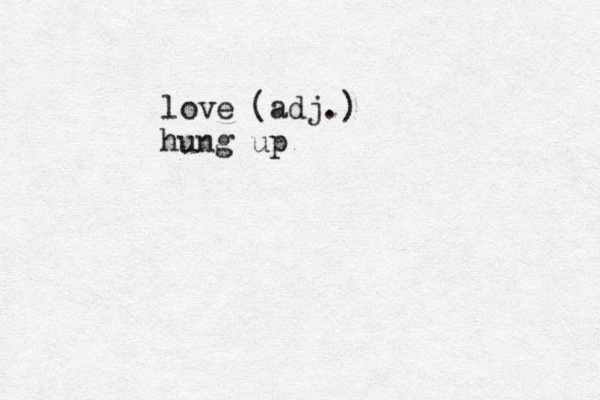 love (adj.)
hung up